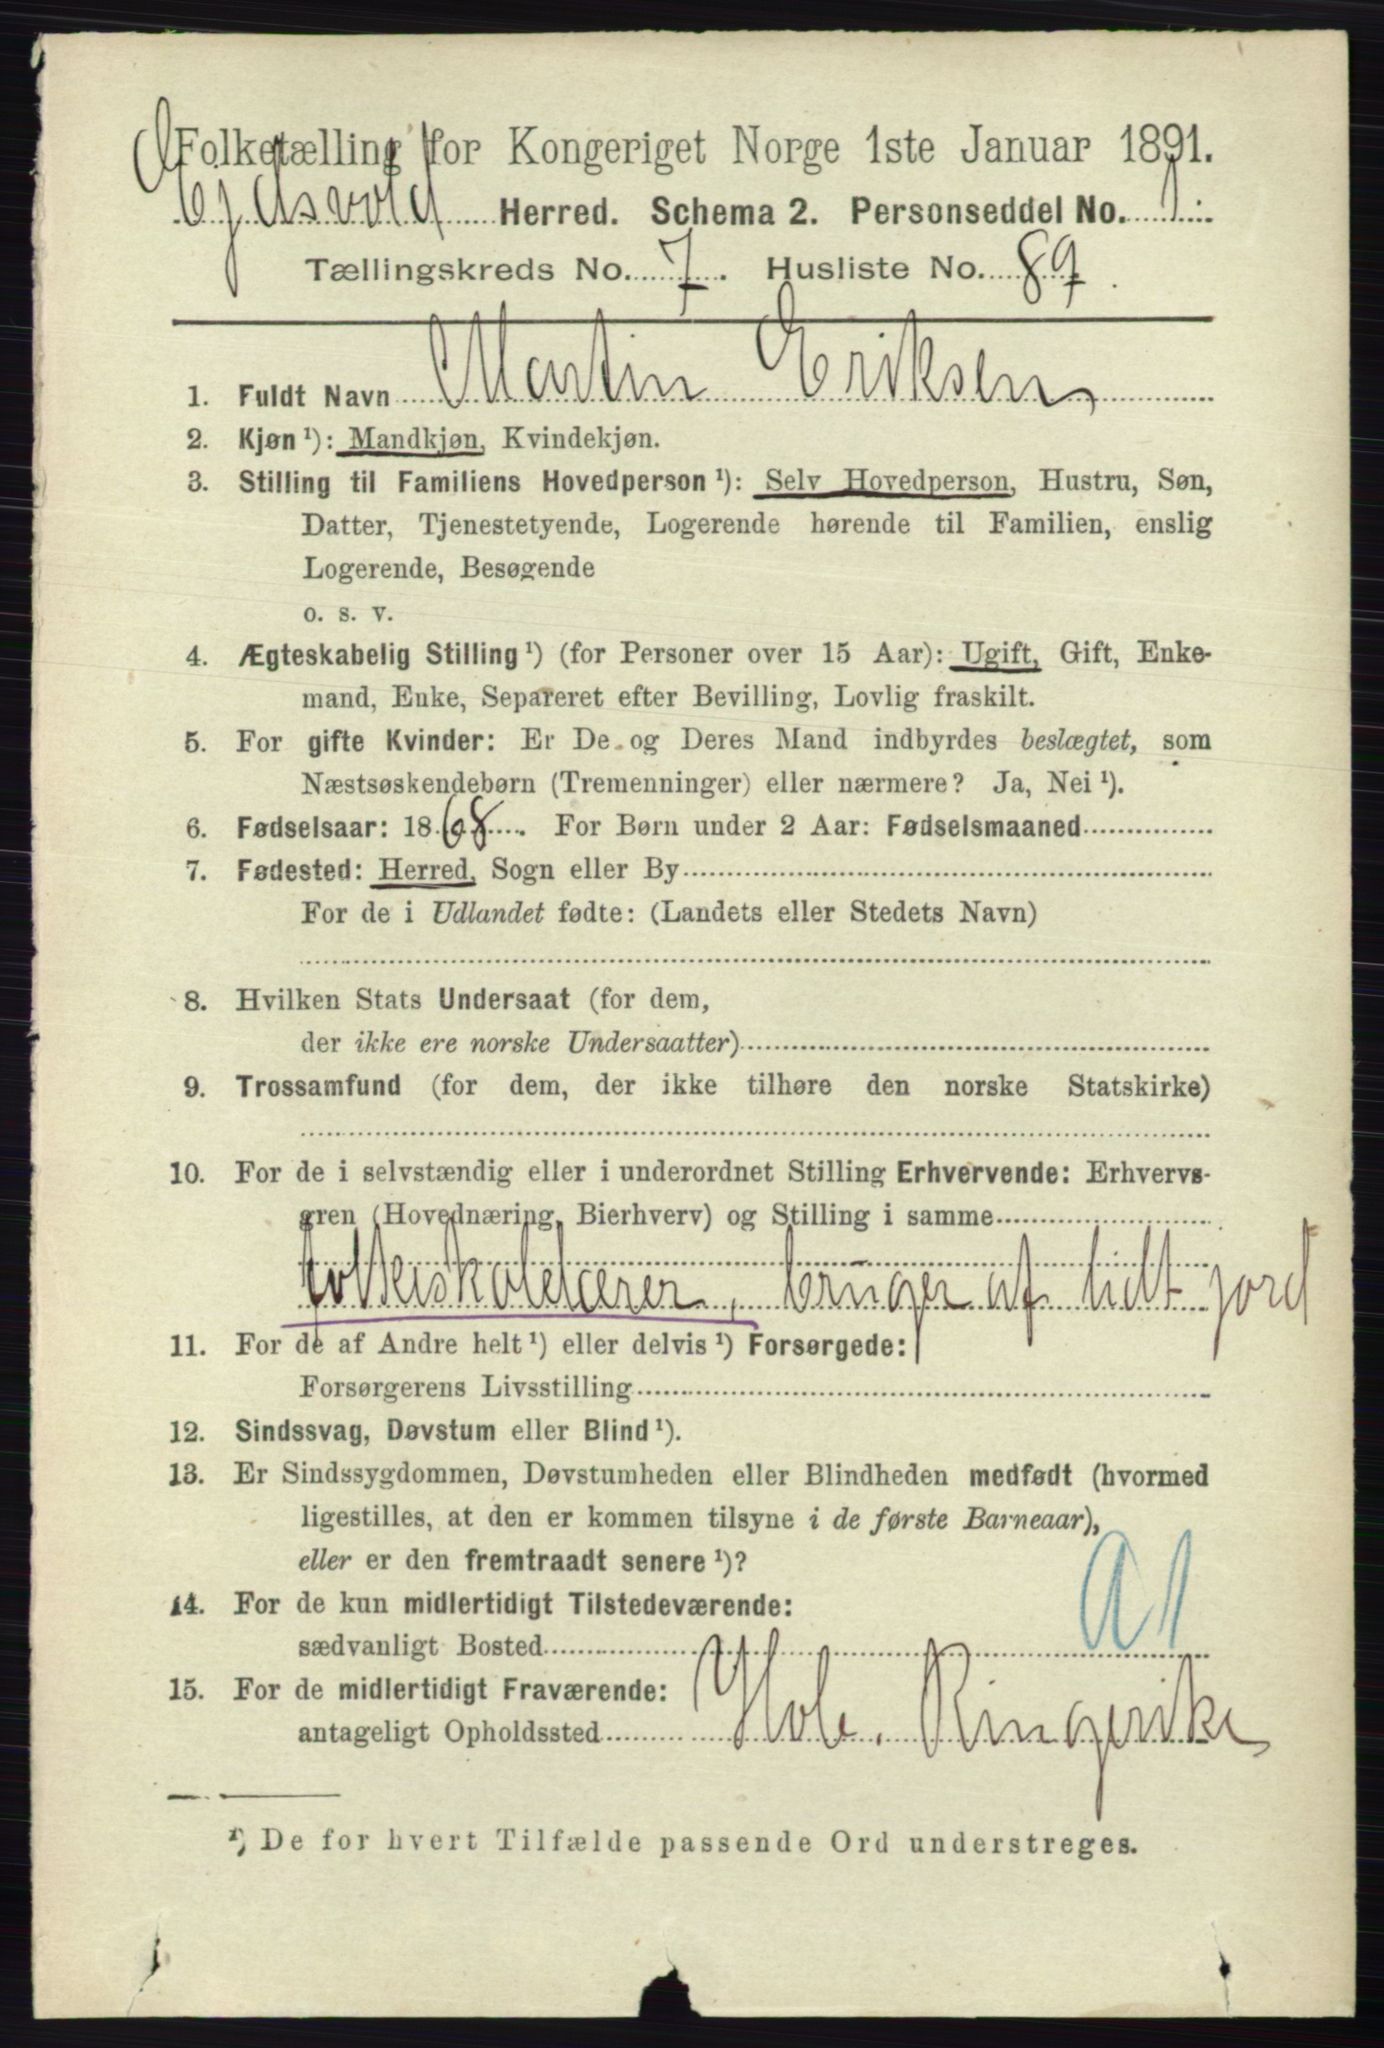 Folketælling for Kongeriget Norge 1ste Januar 1891.
Herred. Schema 2. Personseddel No. 1
Tællingskreds No. 7. Husliste No. 89
1. Fuldt Navn Martin Eriksen
2. Kjøn ¹): Mandkjøn, Kvindekjøn.
3. Stilling til Familiens Hovedperson ¹): Selv Hovedperson, Hustru, Søn,
Datter, Tjenestetyende, Logerende hørende til Familien, enslig
Logerende, Besøgende
o. s. v.
4. Ægteskabelig Stilling ¹) (for Personer over 15 Aar): Ugift, Gift, Enke-
mand, Enke, Separeret efter Bevilling, Lovlig fraskilt.
5. For gifte Kvinder: Er De og Deres Mand indbyrdes beslægtet, som
Næstsøskendebørn (Tremenninger) eller nærmere? Ja, Nei ¹).
6. Fødselsaar: 1868. For Børn under 2 Aar: Fødselsmaaned
7. Fødested: Herred, Sogn eller By
For de i Udlandet fødte: (Landets eller Stedets Navn)
8. Hvilken Stats Undersaat (for dem,
der ikke ere norske Undersaatter)
9. Trossamfund (for dem, der ikke tilhøre den norske Statskirke)
10. For de i selvstændig eller i underordnet Stilling Erhvervende: Erhvervs-
gren (Hovednæring, Bierhverv) og Stilling i samme
bruger af lidt jord
11. For de af Andre helt ¹) eller delvis ¹) Forsørgede:
Forsørgerens Livsstilling
12. Sindssvag, Døvstum eller Blind ¹).
13. Er Sindssygdommen, Døvstumheden eller Blindheden medfødt (hvormed
ligestilles, at den er kommen tilsyne i de første Barneaar),
eller er den fremtraadt senere ¹)?
14. For de kun midlertidigt Tilstedeværende:
sædvanligt Bosted
A1
15. For de midlertidigt Fraværende:
antageligt Opholdssted Hole. Ringerike
¹) De for hvert Tilfælde passende Ord understreges.